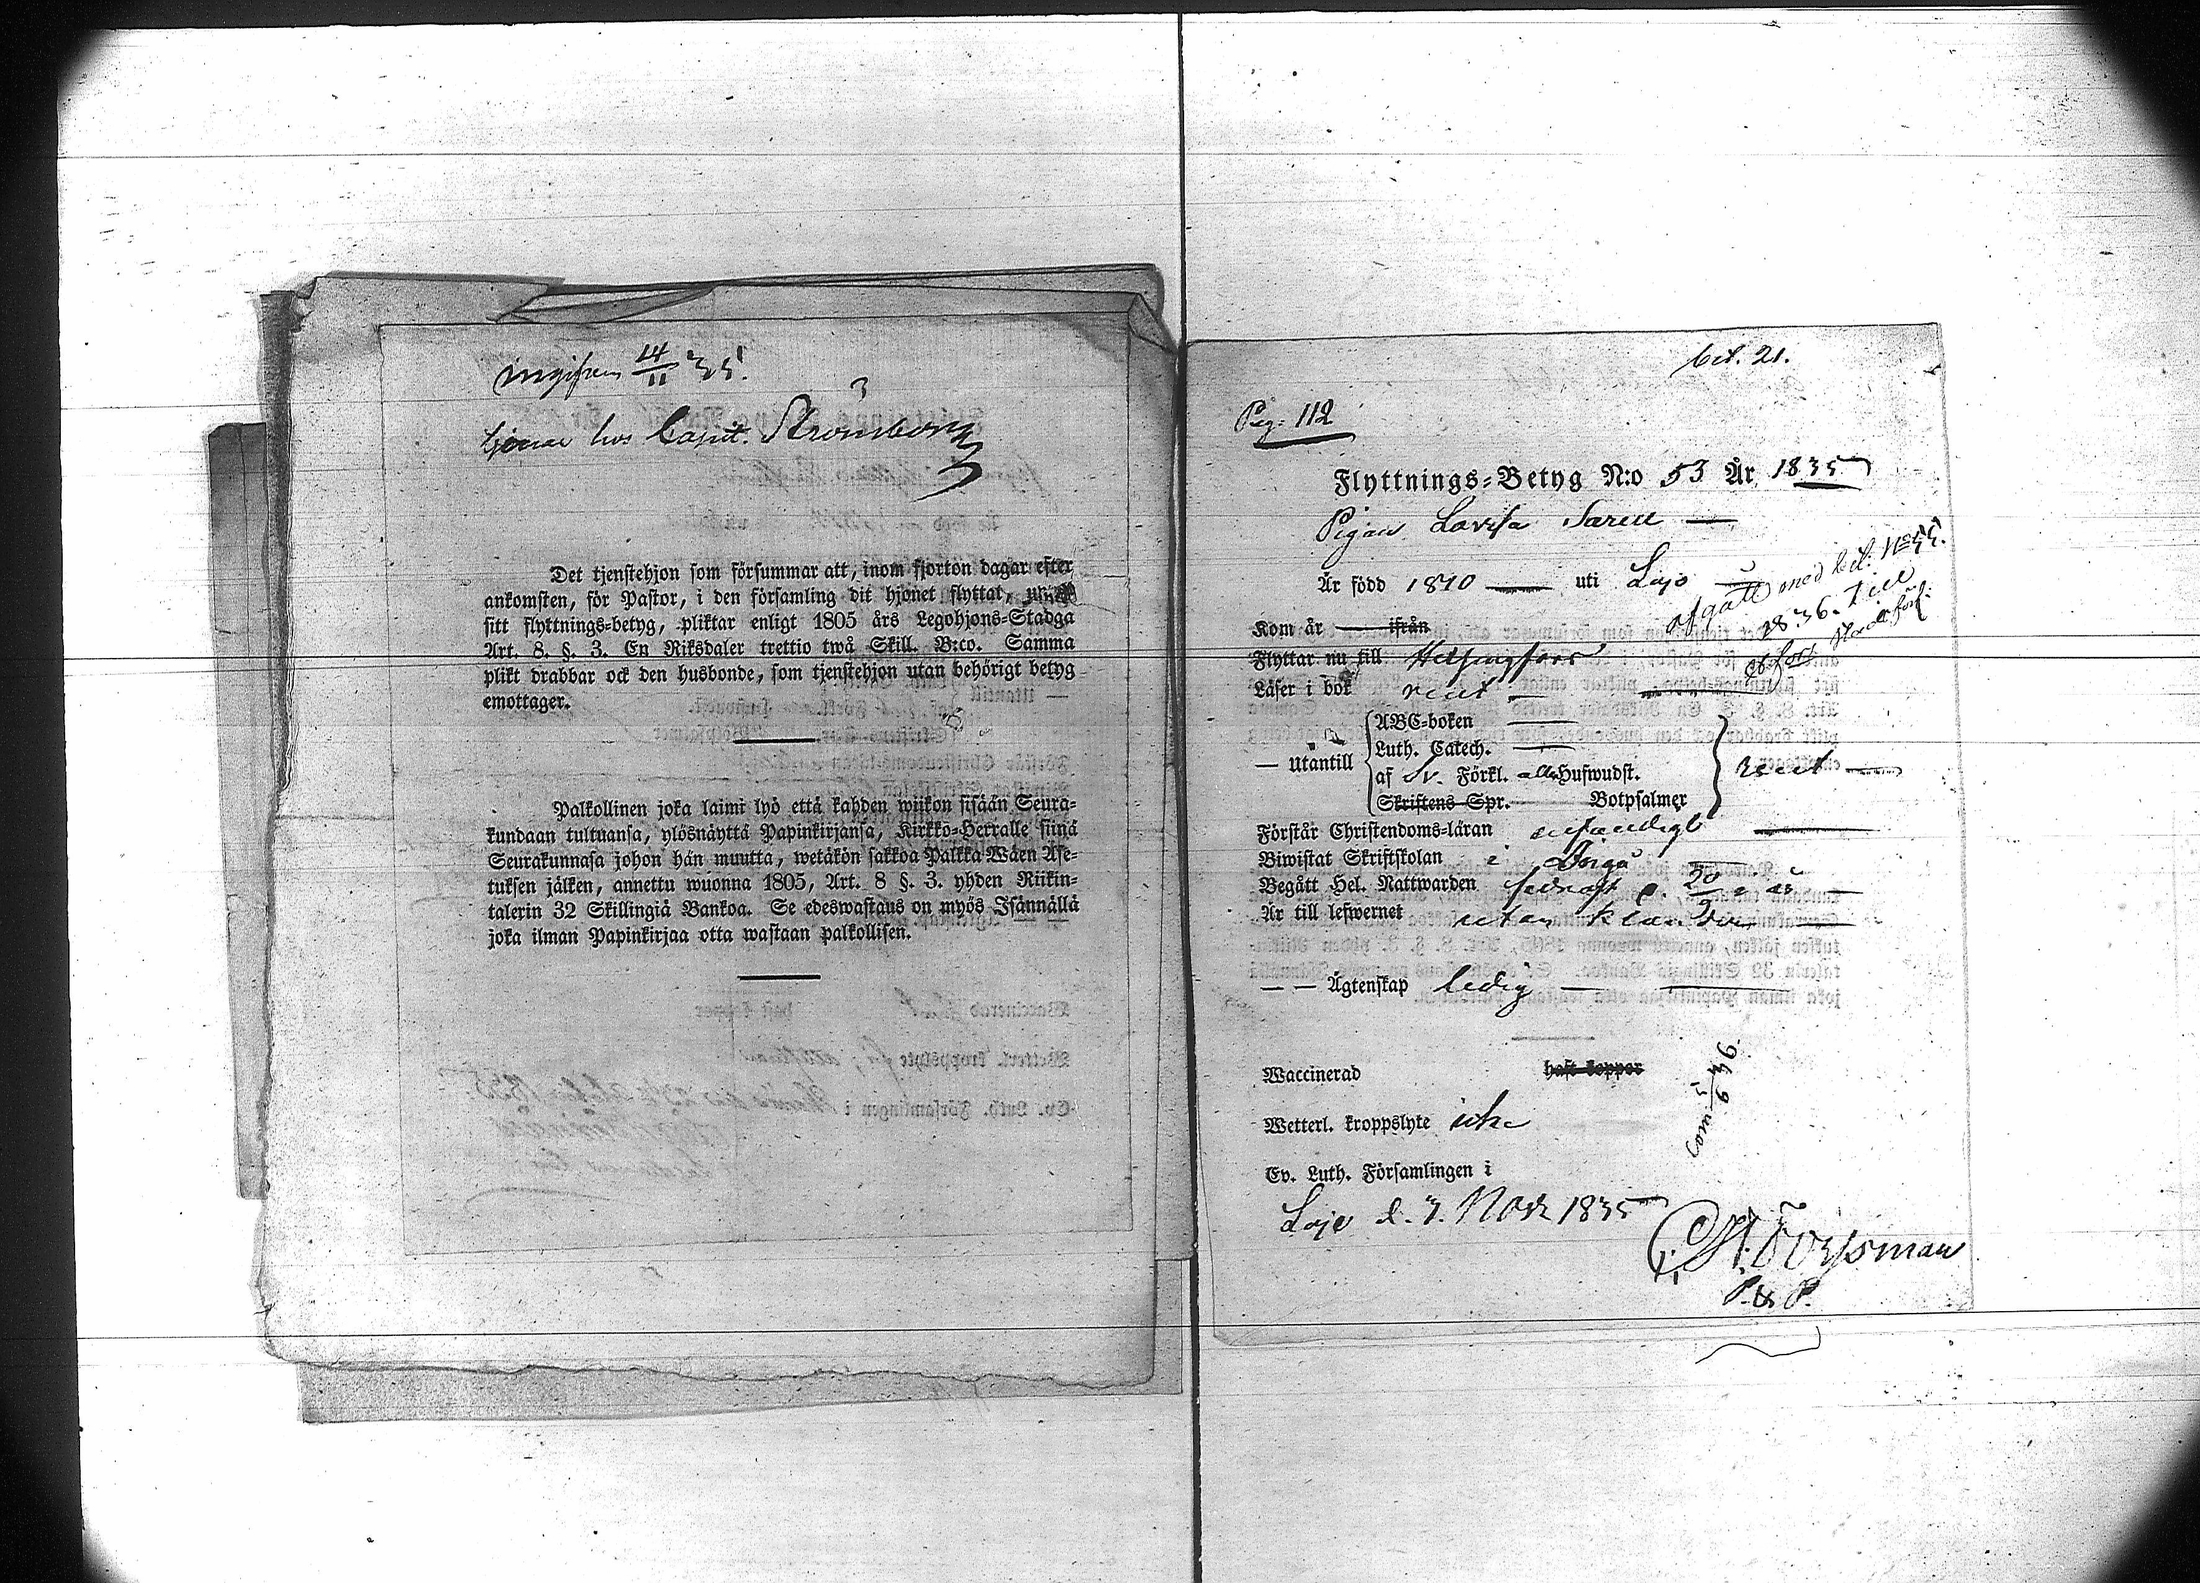 ingifven 14/11 35.
tjenar hos Capit. Strömborg
Det tjenstehjon som försummar att, inom fjorton dagar efter
ankomsten, för Pastor, i den församling dit hjonet flyttat,
sitt flyttnings-betyg, pliktar enligt 1805 års Legohjons-Stadga
Art. 8. §. 3. En Riksdaler trettio twå Skill. B:co. Samma
plikt drabbar ock den husbonde, som tjenstehjon utan behörigt betyg
emottager.
Palkollinen joka laimi lyö että kahden wiikon sisään Seura-
kundaan tultuansa, ylösnäyttä Papinkirjansa, Kirkko-Herralle siinä
Seurakunnasa johon hän muutta, wetäkön sakkoa Palkka Wäen Ase-
tuksen jälken, annettu wuonna 1805, Art. 8 §. 3. yhden Riikin-
talerin 32 Skillingiä Bankoa. Se edeswastaus on myös Isännällä
joka ilman Papinkirjaa otta wastaan palkollisen.
bet. 21.
Pag: 112
Flyttnings-Betyg N:o 53 År 1835
Pigan Lovisa Saren
Är född 1810 uti Lojo
afgått med bet. No 55.
1836. till
Kom år ifrån
Flyttar nu till Helsingfors
Läser i bok rent
ABC-boken
Luth. Catech.
— utantill af Sv. Förkl. alla Hufwudst. rent
Skriftens Spr. Botpsalmer
Förstår Christendoms-läran enfaldigt
Biwistat Skriftskolan i Borgå
Begått Hel. Nattwarden
Är till lefwernet utan klander
— — Ägtenskap ledig
Waccinerad haft koppor
Wetterl. kroppslyte icke
Ev. Luth. Församlingen i
Lojo d. 7. Nov 1835
C. H. Forssman
P. & P.